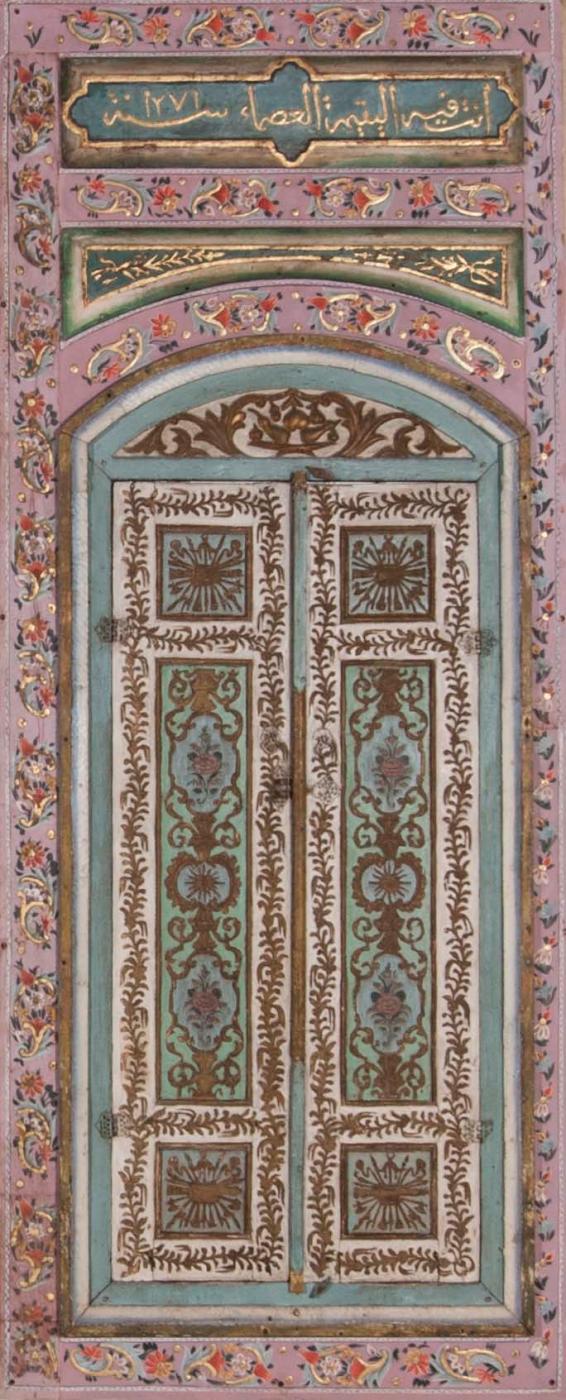 أنت فيه اليتيمة العصماء سنة ١٢٧١